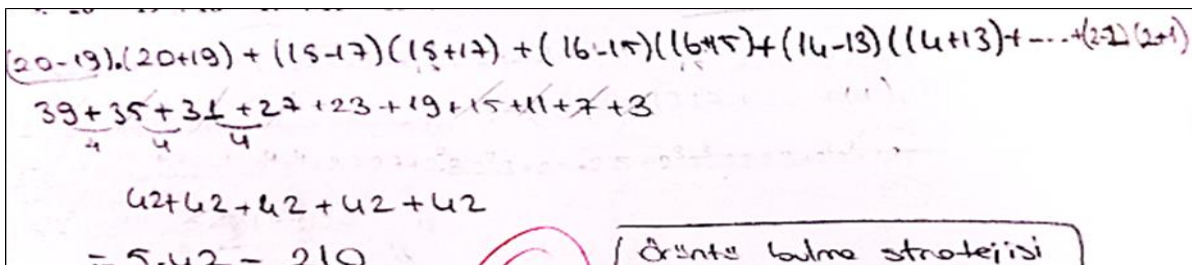 (20-19).(20+19) + (18-17)(18+17) + (16-15)(16+15) + (14-13)(14+13) + ---- + (2-1)(2+1)
39 + 35 + 31 + 27 + 23 + 19 + 15 + 11 + 7 + 3
4 4 4
42+42+42+42+42
= 5.42 = 210
Örüntü bulma stratejisi